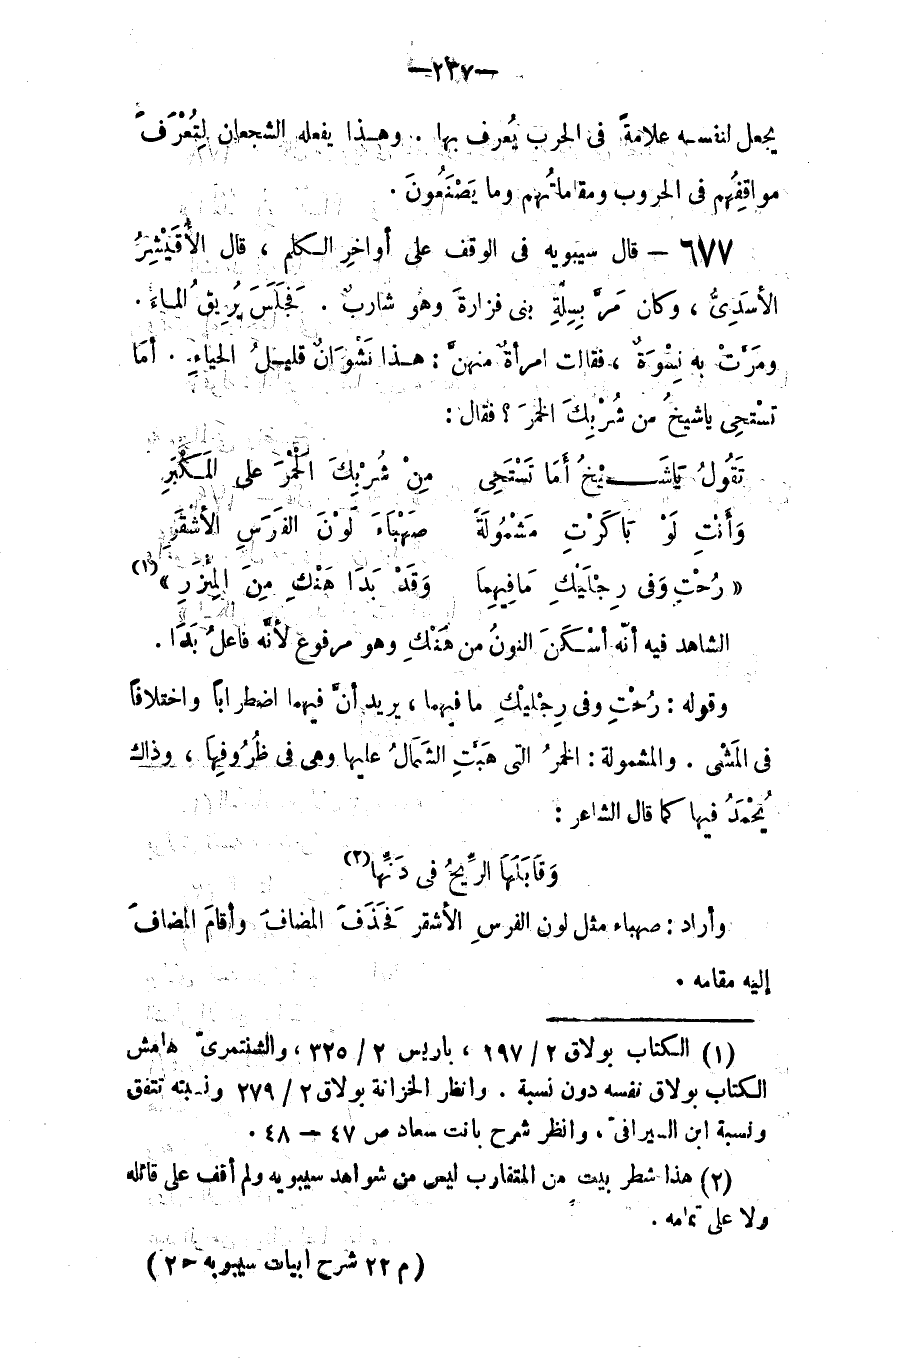 —٢٣٧—
يجعل لنفسه علامةً فى الحرب يُعرف بها . وهذا يفعله الشجعان لِتُعْرَفَ
مواقِفُهم فى الحروب ومقاماتُهم وما يَصْنَعُونَ .
٦٧٧ — قال سيبويه فى الوقف على أواخرِ الكلم ، قال الأُقَيْشِرُ
الأسَدِىُّ ، وكان مَرَّ بِسِكّةِ بنى فزارةَ وهو شاربٌ . فَجَلَسَ يُريق الماءَ .
ومَرَّتْ به نِسْوَةٌ ، فقالت امرأةٌ منهنَّ : هذا نَشْوَانٌ قليلُ الحياءِ . أمَا
تسْتحِى ياشيخُ من شُرْبِكَ الخمرَ ؟ فقال :
تَقُولُ يَاشَيْخُ أَمَا تَسْتَحِى مِنْ شُرْبِكَ الْخَمْرَ على المَكْبَرِ
وَأَنْتِ لَوْ بَاكَرْتِ مَشْمُولَةً صَهْبَاءَ لَوْنَ الفَرَسِ الأشْقَرِ
« رُحْتِ وَفى رِجْلَيْكِ مَافِيهِمَا وَقَدْ بَدَا هَنْكِ مِنَ المِئْزَرِ » (١)
الشاهد فيه أنّه أسْكَنَ النونُ من هَنْكِ وهو مرفوع لأنّه فاعلُ بَدَا .
وقوله : رُحْتِ وفى رِجْليْكِ ما فيهما ، يريد أنَّ فيهما اضطراباً واختلافاً
فى المَشْى . والمشمولة : الخمرُ التى هَبَّتِ الشَّمَالُ عليها وهى فى ظُرُوفِها ، وذاك
يُحْمَدُ فيها كما قال الشاعر :
وَقَابَلَهَا الرِّيحُ فى دَنِّها (٢)
وأراد : صهباء مثل لون الفرسِ الأشقر فَحَذَفَ المضافَ وأقامَ المضافَ
إليه مقامه .
(١) الكتاب بولاق ٢ / ٢٩٧ ، باريس ٢ / ٣٢٥ ، والشنتمرىّ هامش
الكتاب بولاق نفسه دون نسبة . وانظر الخزانة بولاق ٢ / ٢٧٩ ونسبته تتفق
ونسبة ابن السيرافىّ ، وانظر شرح بانت سعاد ص ٤٧ — ٤٨ .
(٢) هذا شطر بيت من المتقارب ليس من شواهد سيبويه ولم أقف على قائله
ولا على تمامه .
( م ٢٢ شرح ابيات سيبويه ح ٢ )